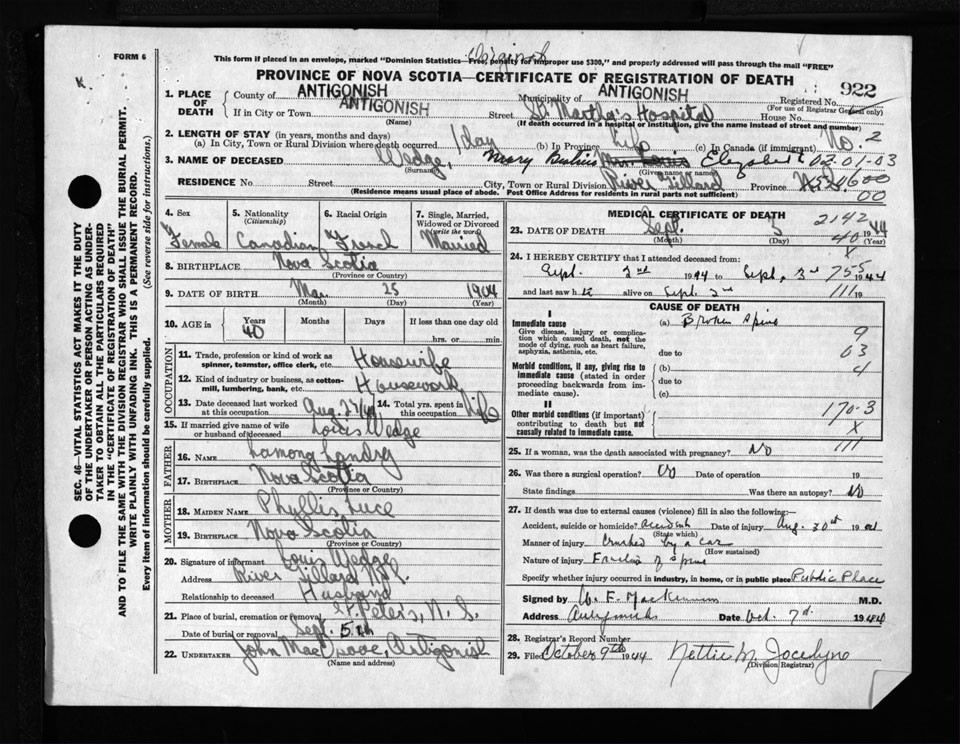 FORM 6
Original
This form if placed in an envelope, marked "Dominion Statistics—Free, penalty for improper use $300," and properly addressed will pass through the mail "FREE"
PROVINCE OF NOVA SCOTIA—CERTIFICATE OF REGISTRATION OF DEATH
K
922
1. PLACE OF DEATH
County of ANTIGONISH Municipality of ANTIGONISH Registered No.
(For use of Registrar General only)
If in City or Town ANTIGONISH Street St Martha's Hospital House No.
(Name) (If death occurred in a hospital or institution, give the name instead of street and number)
2. LENGTH OF STAY (in years, months and days) No. 2
(a) In City, Town or Rural Division where death occurred 1 day (b) In Province Life (c) In Canada (if immigrant)
3. NAME OF DECEASED Wedge, Mary Elizabeth 02-01-03
(Surname) (Given name or names)
RESIDENCE No Street City, Town or Rural Division River Tillard Province
00
(Residence means usual place of abode. Post Office Address for residents in rural parts not sufficient)
4. Sex 5. Nationality (Citizenship) 6. Racial Origin 7. Single, Married, Widowed or Divorced (write the word)
Female Canadian French Married
8. BIRTHPLACE Nova Scotia
(Province or Country)
9. DATE OF BIRTH Mar. 25 1904
(Month) (Day) (Year)
10. AGE in Years Months Days If less than one day old
40 hrs. or min.
OCCUPATION
11. Trade, profession or kind of work as spinner, teamster, office clerk, etc. Housewife
12. Kind of industry or business, as cotton-mill, lumbering, bank, etc. Housework
13. Date deceased last worked at this occupation Aug. 14. Total yrs. spent in this occupation Life
15. If married give name of wife or husband of deceased Louis Wedge
FATHER
16. NAME Lamong Landry
17. BIRTHPLACE Nova Scotia
(Province or Country)
MOTHER
18. MAIDEN NAME Phyllis Luce
19. BIRTHPLACE Nova Scotia
(Province or Country)
20. Signature of informant Louis Wedge
Address River Tillard N.S.
Relationship to deceased Husband
21. Place of burial, cremation or removal St. Peters, N.S.
Date of burial or removal Sept. 5th
22. UNDERTAKER John Antigonish
(Name and address)
MEDICAL CERTIFICATE OF DEATH
2142
23. DATE OF DEATH Sept. 3 1944
(Month) (Day) (Year)
40
X
24. I HEREBY CERTIFY that I attended deceased from:
Sept. 2nd 1944 to Sept. 3rd 1944
755
and last saw h alive on Sept. 19
111
CAUSE OF DEATH
I
Immediate cause (a) Broken Spine
Give disease, injury or complication which caused death, not the mode of dying, such as heart failure, asphyxia, asthenia, etc.
due to
9
03
4
Morbid conditions, if any, giving rise to immediate cause (stated in order proceeding backwards from immediate cause).
(b)
due to
(c)
II
Other morbid conditions (if important) contributing to death but not causally related to immediate cause.
170-3
X
111
25. If a woman, was the death associated with pregnancy? No
26. Was there a surgical operation? No Date of operation 19
State findings Was there an autopsy? No
27. If death was due to external causes (violence) fill in also the following:—
Accident, suicide or homicide? Accident Date of injury Aug. 30th 19
(State which)
Manner of injury Crushed by a car
(How sustained)
Nature of injury Fracture of spine
Specify whether injury occurred in industry, in home, or in public place Public Place
Signed by M.D.
Address Antigonish Date Oct. 7th 1944
28. Registrar's Record Number
29. Filed October 9th 1944 Nettie M. Jocelyne
(Division Registrar)
SEC. 46—VITAL STATISTICS ACT MAKES IT THE DUTY
OF THE UNDERTAKER OR PERSON ACTING AS UNDER-
TAKER TO OBTAIN ALL THE PARTICULARS REQUIRED
IN THE "CERTIFICATE OF REGISTRATION OF DEATH"
AND TO FILE THE SAME WITH THE DIVISION REGISTRAR WHO SHALL ISSUE THE BURIAL PERMIT.
WRITE PLAINLY WITH UNFADING INK. THIS IS A PERMANENT RECORD.
Every item of information should be carefully supplied. (See reverse side for instructions.)